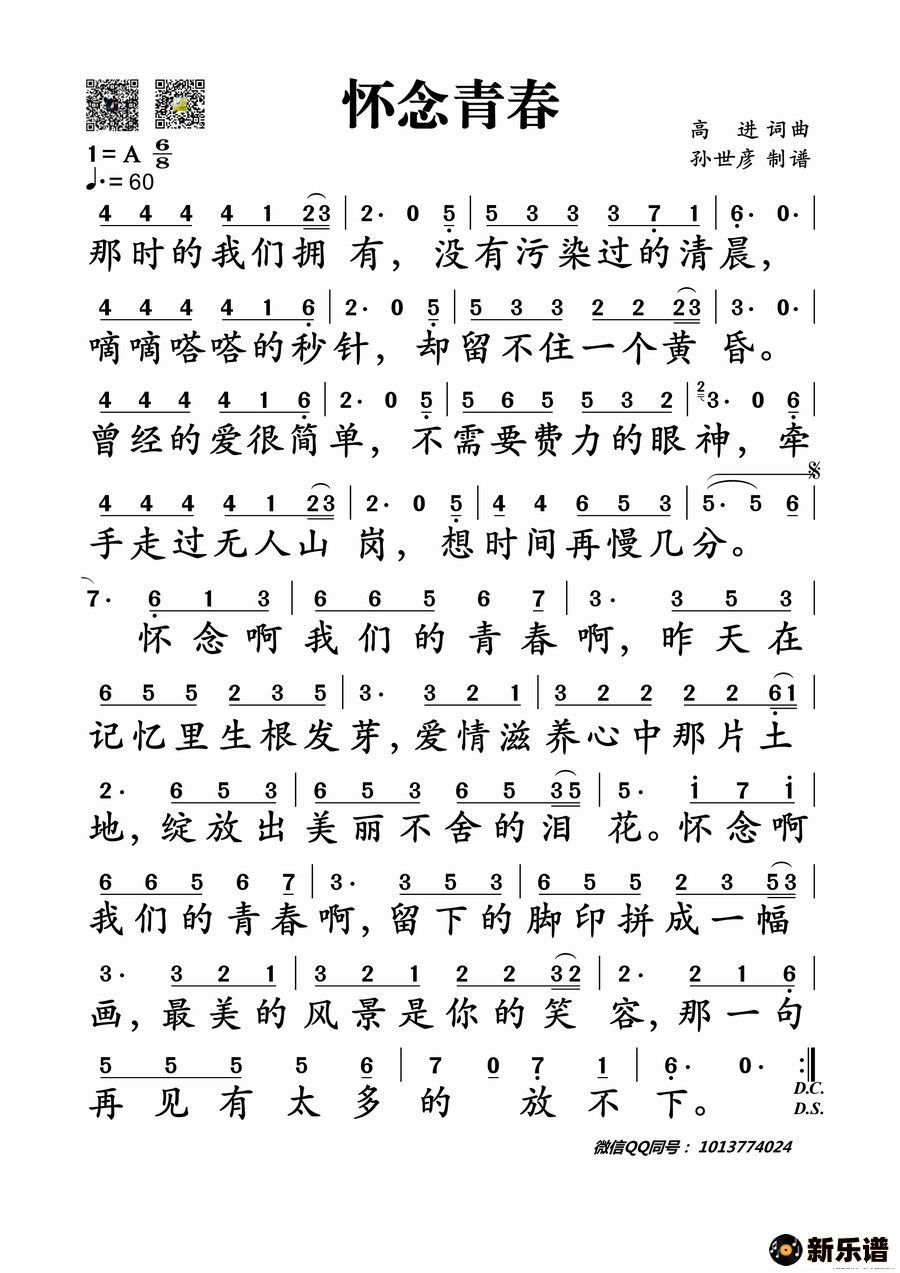 怀念青春
高 进 词曲
孙世彦 制谱
1=A 6/8
♩.=60
4 4 4 4 1 23 | 2· 0 5̣ | 5 3 3 3 7̣ 1 | 6̣· 0· |
那时的我们拥 有，没有污染过的清晨，
4 4 4 4 1 6̣ | 2· 0 5̣ | 5 3 3 2 2 23 | 3· 0· |
嘀嘀嗒嗒的秒针，却留不住一个黄 昏。
4 4 4 4 1 6̣ | 2· 0 5̣ | 5 6 5 5 3 2 | 2 3· 0 6̣ |
曾经的爱很简单，不需要费力的眼神，牵
4 4 4 4 1 23 | 2· 0 5̣ | 4 4 6 5 3 | 5· 5 6 |
手走过无人山 岗，想时间再慢几分。
7· 6̣ 1 3 | 6 6 5 6 7 | 3· 3 5 3 |
怀念啊我们的青春啊，昨天在
6 5 5 2 3 5 | 3· 3 2 1 | 3 2 2 2 2 6̣1 |
记忆里生根发芽，爱情滋养心中那片土
2· 6 5 3 | 6 5 3 6 5 35 | 5· 1̇ 7 1̇ |
地，绽放出美丽不舍的泪 花。怀念啊
6 6 5 6 7 | 3· 3 5 3 | 6 5 5 2 3 53 |
我们的青春啊，留下的脚印拼成一幅
3· 3 2 1 | 3 2 1 2 2 32 | 2· 2 1 6̣ |
画，最美的风景是你的笑 容，那一句
5 5 5 5 6 | 7 0 7̣ 1 | 6̣· 0· :‖
再见有太多的 放不下。
D.C.
D.S.
微信QQ同号：1013774024
新乐谱